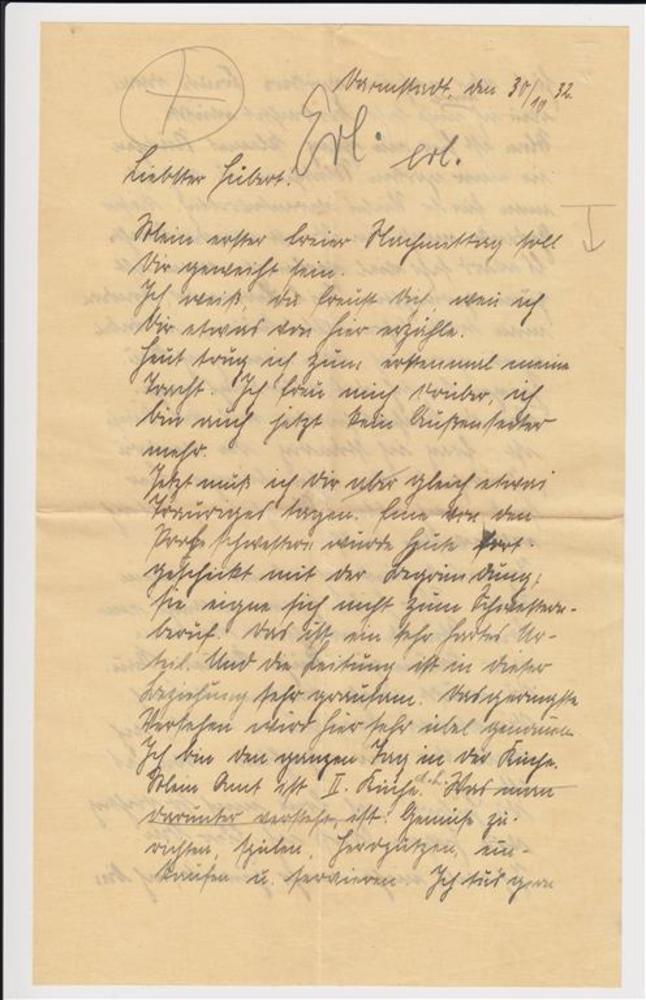 Darmstadt, den 30/10 32.
Erl. erl.
Liebster Hubert!
Mein erster freier Nachmittag soll
Dir geweiht sein.
Ich weiß, du freust Dich, wenn ich
Dir etwas von hier erzähle.
Heut trug ich zum erstenmal meine
Tracht. Ich freu mich drüber, ich
bin auch jetzt kein Außenseiter
mehr.
Jetzt muß ich Dir aber gleich etwas
Trauriges sagen. Eine von den
Probeschwestern wurde heute fort-
geschickt mit der Begründung,
sie eigne sich nicht zum Schwestern-
beruf. Das ist ein sehr hartes Ur-
teil. Und die Leitung ist in dieser
Beziehung sehr grausam. Das geringste
Versehen wird hier sehr übel genommen.
Ich bin den ganzen Tag in der Küche.
Mein Amt ist II. Küche. d.h. Was man
darunter versteht, ist: Gemüse zu-
richten, spülen, Herdputzen, ein-
kaufen u. servieren. Ich tu's gern